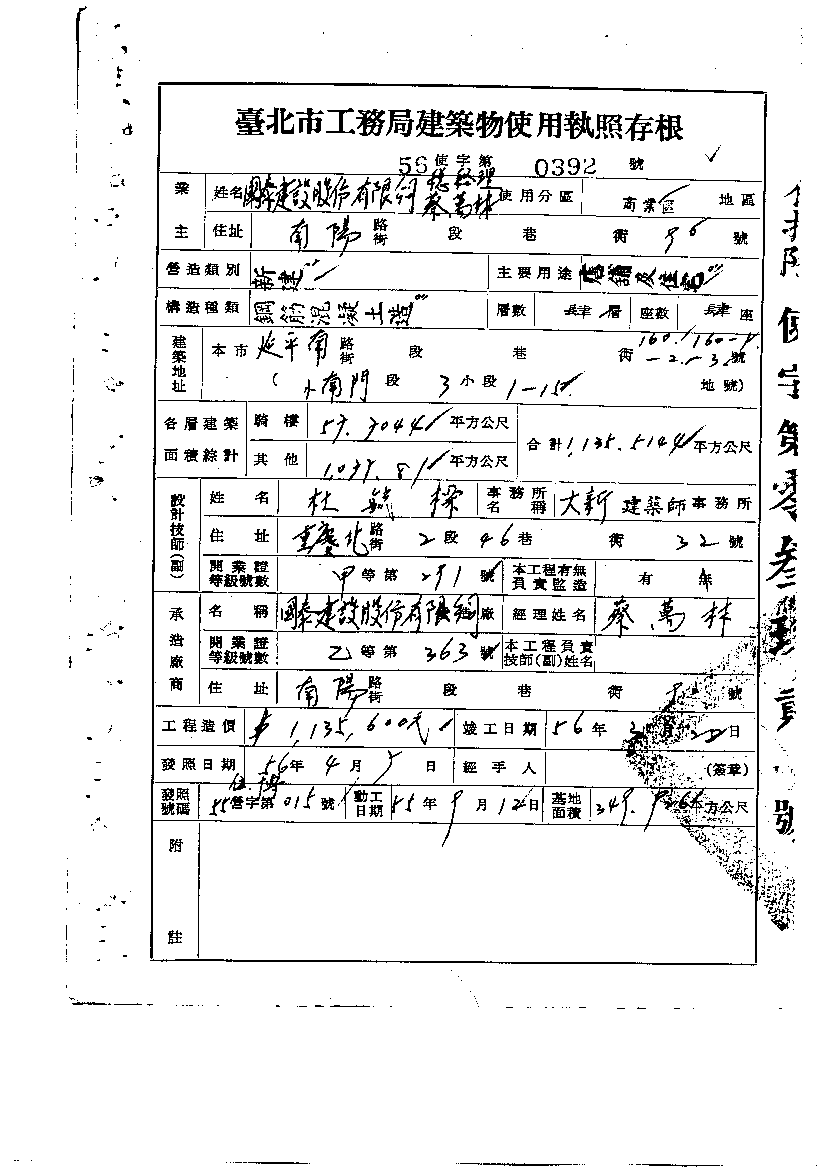 臺北市工務局建築物使用執照存根
56使字第 0392 號
業主 姓名 國泰建設股份有限公司 總經理 蔡萬林 使用分區 商業區 地區
住址 南陽 路街 段 巷 衖 號
營造類別 新建 主要用途 店鋪及住宅
構造種類 鋼筋混凝土造 層數 肆層 座數 肆座
建築地址 本市 延平南 路街 段 巷 衖 160.160-1 -2.-3 號
(小南門 段 3 小段 1-15 地號)
各層建築面積綜計 騎樓 57.7044 平方公尺 合計 1,135.5144 平方公尺
其他 1,077.81 平方公尺
設計技師(副) 姓名 杜 事務所名稱 大新 建築師事務所
住址 重慶北 路街 2段 46巷 衖 32號
開業證等級號數 甲等第 291 號 本工程有無負責監造 有
承造廠商 名稱 國泰建設股份有限公司 廠 經理姓名 蔡萬林
開業證等級號數 乙等第 363 號 本工程負責技師(副)姓名
住址 南陽 路街 段 巷 衖 號
工程造價 $1,135,600元 竣工日期 56年3月 日
發照日期 56年4月5日 經手人 (簽章)
發照號碼 55營字第015號 動工日期 55年9月12日 基地面積 平方公尺
附註
使字第零叁 號